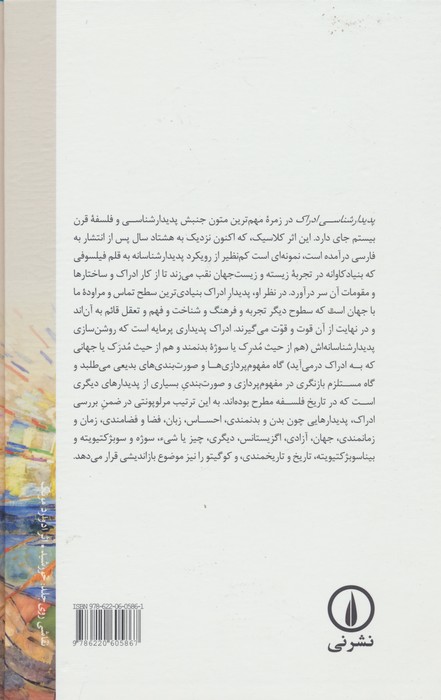 پدیدارشناسی ادراک در زمرهٔ مهم‌ترین متون جنبش پدیدارشناسی و فلسفهٔ قرن
بیستم جای دارد. این اثر کلاسیک، که اکنون نزدیک به هشتاد سال پس از انتشار به
فارسی درآمده است، نمونه‌ای است کم‌نظیر از رویکرد پدیدارشناسانه به قلم فیلسوفی
که بنیادکاوانه در تجربهٔ زیسته و زیست‌جهان نقب می‌زند تا از کار ادراک و ساختارها
و مقومات آن سر درآورد. در نظر او، پدیدار ادراک بنیادی‌ترین سطح تماس و مراودهٔ ما
با جهان است که سطوح دیگر تجربه و فرهنگ و شناخت و فهم و تعقل قائم به آن‌اند
و در نهایت از آن قوت و قوّت می‌گیرند. ادراک پدیداری پرمایه است که روشن‌سازی
پدیدارشناسانه‌اش (هم از حیث مُدرِک یا سوژهٔ بدنمند و هم از حیث مُدرَک یا جهانی
که به ادراک درمی‌آید) گاه مفهوم‌پردازی‌ها و صورت‌بندی‌های بدیعی می‌طلبد و
گاه مستلزم بازنگری در مفهوم‌پردازی و صورت‌بندیِ بسیاری از پدیدارهای دیگری
است که در تاریخ فلسفه مطرح بوده‌اند. به این ترتیب مرلوپونتی در ضمنِ بررسی
ادراک، پدیدارهایی چون بدن و بدنمندی، احساس، زبان، فضا و فضامندی، زمان و
زمانمندی، جهان، آزادی، اگزیستانس، دیگری، چیز یا شیء، سوژه و سوبژکتیویته و
بیناسوبژکتیویته، تاریخ و تاریخمندی، و کوگیتو را نیز موضوع بازاندیشی قرار می‌دهد.
ISBN 978-622-06-0586-1
9 786220 605867
نشرنی